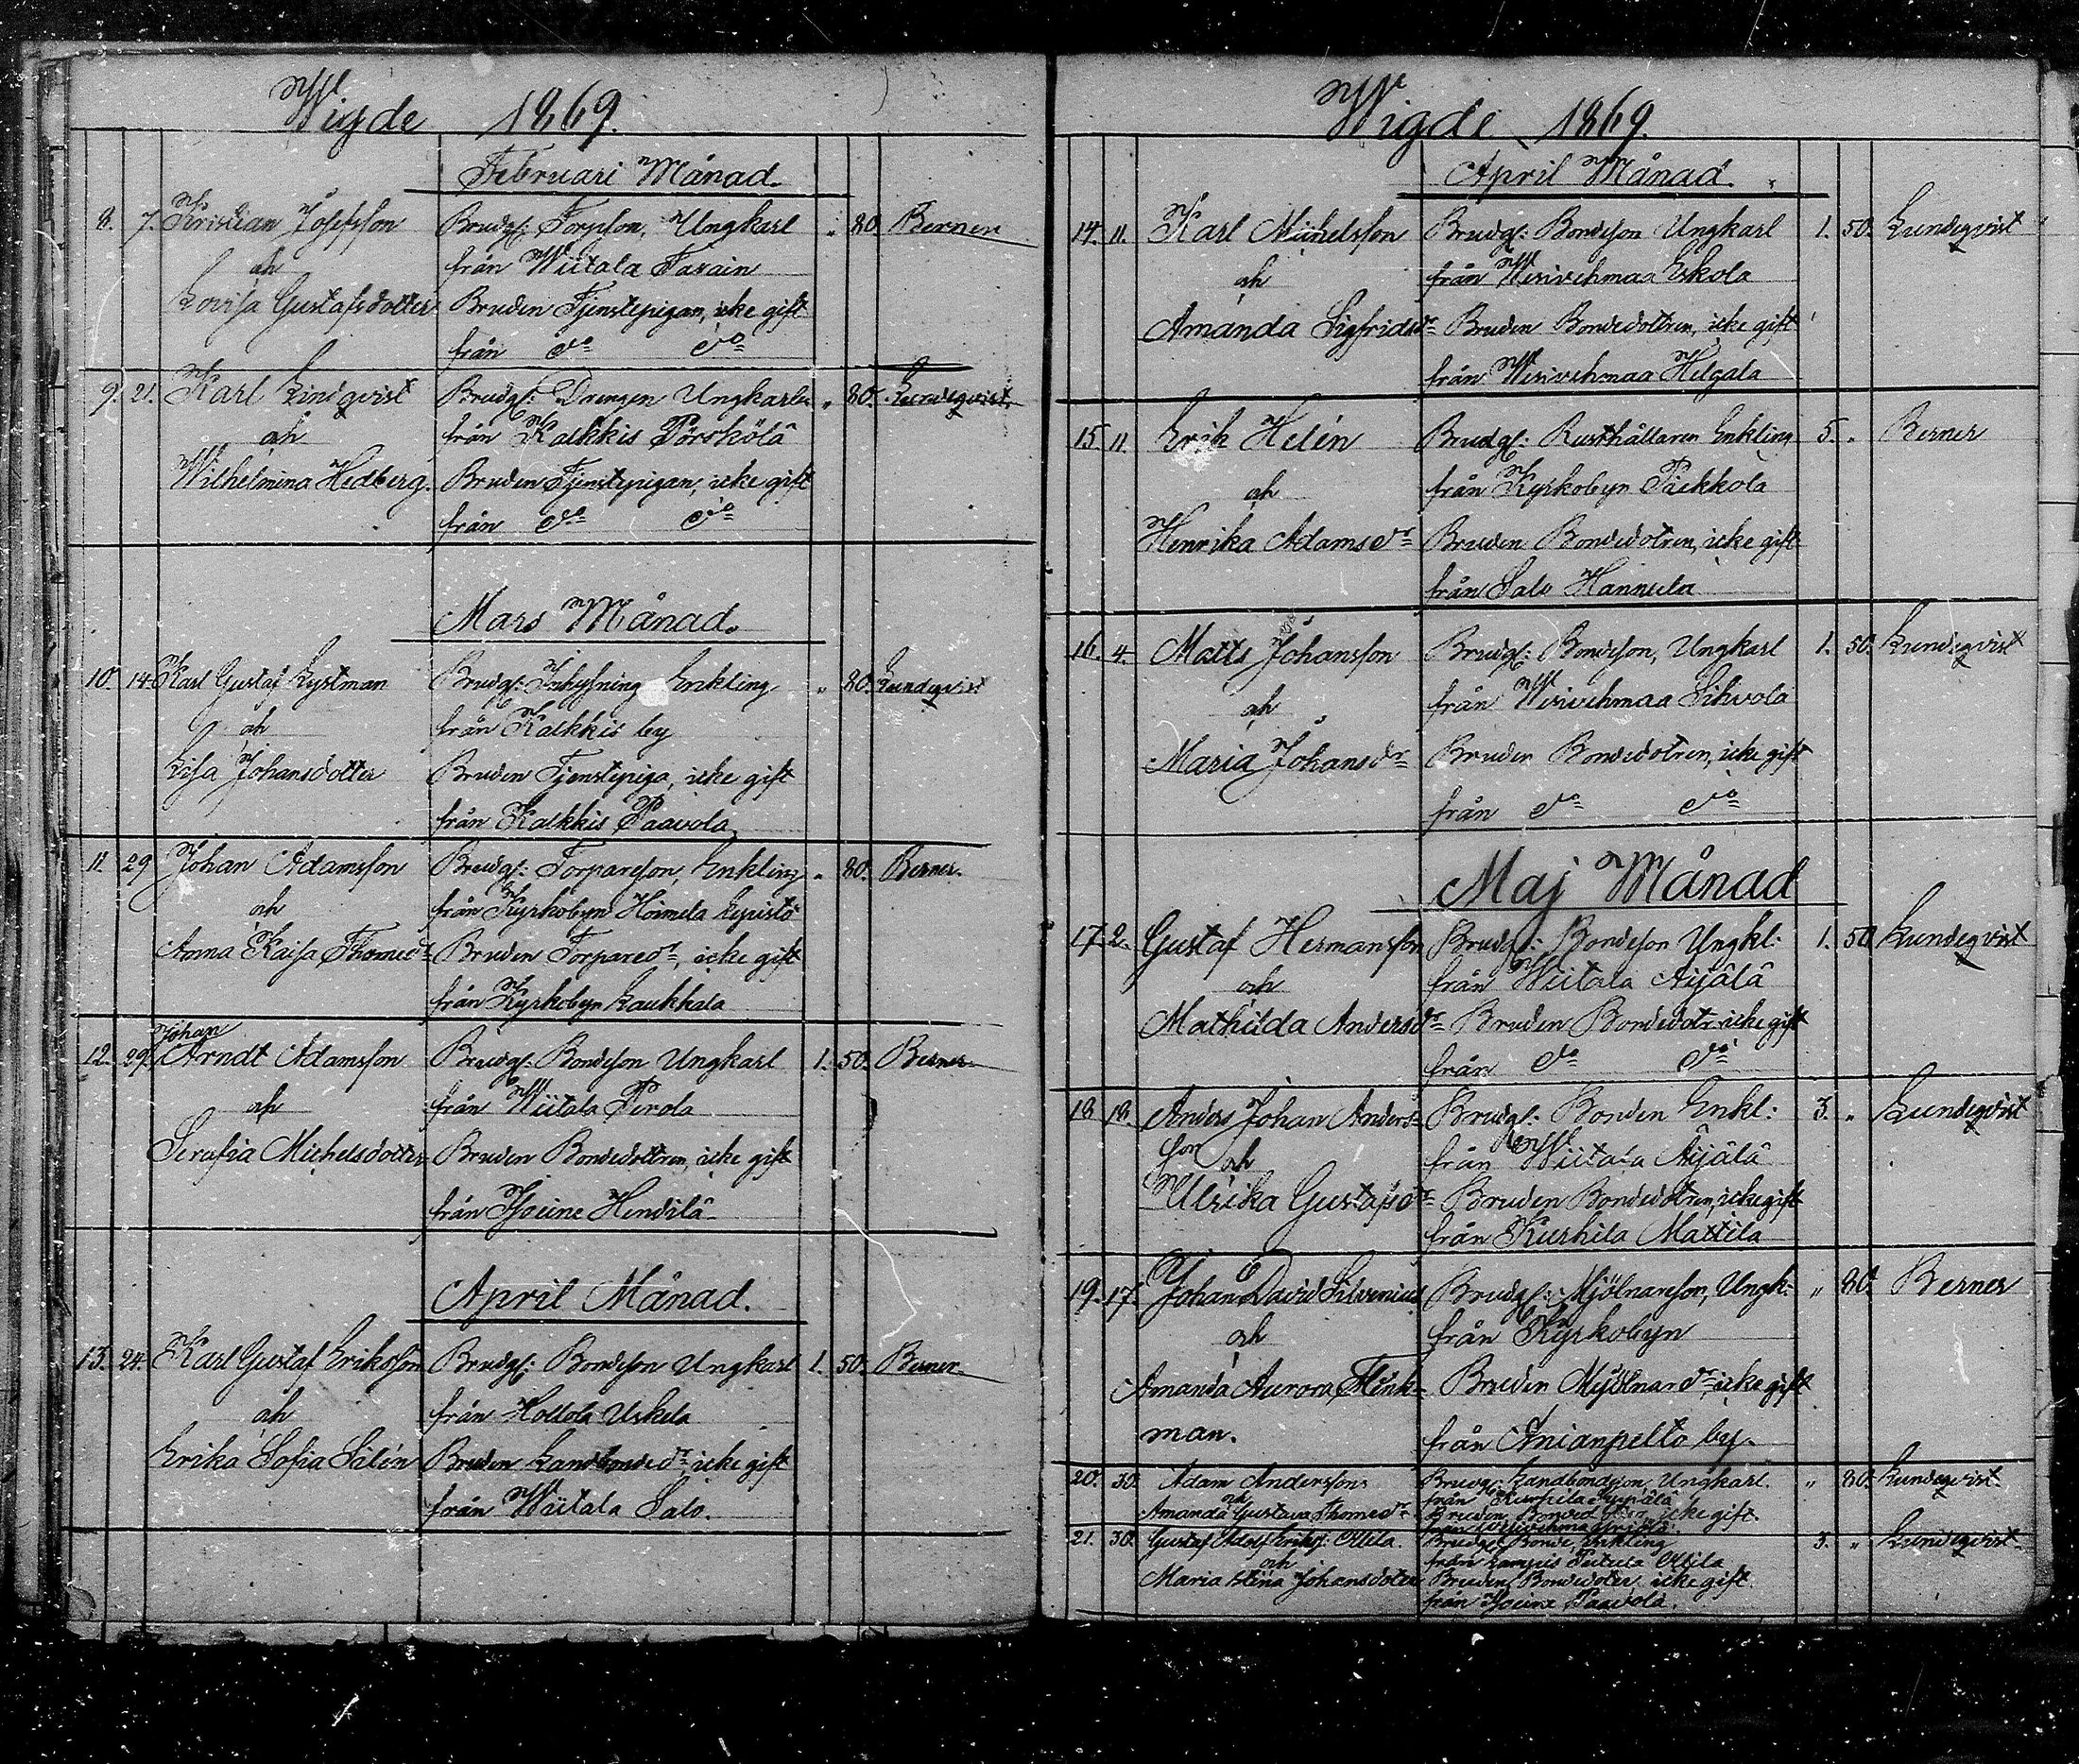 Wigde 1869.
Februari Månad.
8. 7. Kristian Josefsson Brudg: Torpson, Ungkarl " 80. Berner
och från Wiitala Tarain
Lovisa Gustafsdotter Bruden Tjenstepigan, icke gift
från do do
9. 21. Karl Lindqvist Brudg: Drengen Ungkarln " 80. Lundeqvist.
och från Kalkkis Pörskölä
Wilhelmina Hedberg. Bruden Tjenstepigan, icke gift
från do do
Mars Månad.
10. 14. Karl Gustaf Lystman Brudg: Inhysning Enkling " 80. Lundeqvist
och från Kalkkis by
Lisa Johansdotter Bruden Tjenstepiga, icke gift
från Kalkkis Paavola
11. 29 Johan Adamsson Brudg: Torpareson, Enkling " 80. Berner.
och från Kyrkobyn Hoimela
Anna Kaisa Thomasdr Bruden Torparedr, icke gift
från Kyrkobyn Laukkala
Johan
12. 29. Arndt Adamsson Brudg: Bondeson Ungkarl 1. 50. Berner
och från Wiitala Perola
Serafia Michelsdotter Bruden Bondedottren, icke gift
från Hendilä
April Månad.
13. 24. Karl Gustaf Eriksson Brudg: Bondeson Ungkarl 1. 50. Berner
och från Hollola Uskela
Erika Sofia Salén Bruden Landbondedr, icke gift
från Wiitala Salo.
Wigde 1869.
April Månad.
14. 11. Karl Michelsson Brudg: Bondeson Ungkarl 1. 50. Lundeqvist
och från Wesivehmaa Eskola
Amanda Sigfridsdr Bruden Bondedottren, icke gift
från Wesivehmaa Helgala
15. 11. Erik Helén Brudg: Rusthållaren Enkling 5. " Berner
och från Kyrkobyn Päkkola
Henrika Adamsdr Bruden Bondedotren, icke gift
från Salo Hannula
16. 4. Matts Johansson Brudg: Bondeson, Ungkarl 1. 50. Lundeqvist
och från Wesivehmaa Sihvola
Maria Johansdr Bruden Bondedotren, icke gift
från do do
Maj Månad
17. 2. Gustaf Hermansson Brudg: Bondeson Ungkl: 1. 50 Lundeqvist
och från Wiitala Äijälä
Mathilda Andersdr Bruden Bondedotr icke gift
från do do
18 18. Anders Johan Anders- Brudg: Bonden Enkl: 3. " Lundeqvist
son och från Wiitala Äijälä
Ulrika Gustafsdr Bruden Bondedotren, icke gift
från Kurhila Mattila
19. 17. Johan David Silvenius Brudg: Mjölnareson, Ungk: " 80. Berner
och från Kyrkobyn
Amanda Aurora Flink- Bruden Mjölnaredr, icke gift
man. från Anianpelto by.
20. 30. Adam Andersson Brudg: Landbondeson, Ungkarl. " 80. Lundeqvist.
och från Kurhila
Amanda Gustava Thomasdr Bruden Bondedotren, icke gift.
från Wesivehmaa
21. 30. Gustaf Adolf Eriks: Ollila. Brudg: Bonde, Enkling 3. " Lundeqvist
och från Ollila
Maria Stina Johansdoter Bruden Bondedoter, icke gift.
från Paavola.